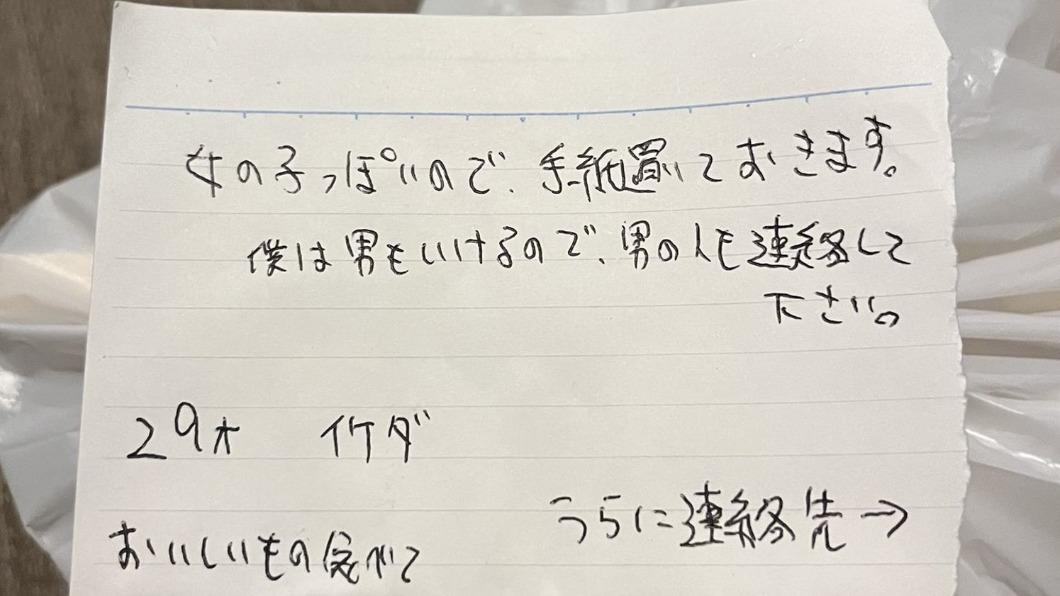 女の子っぽいので、手紙置いておきます。
僕は男もいけるので、男の人も連絡して
下さい。
29才 イケダ
うらに連絡先→
おいしいもの